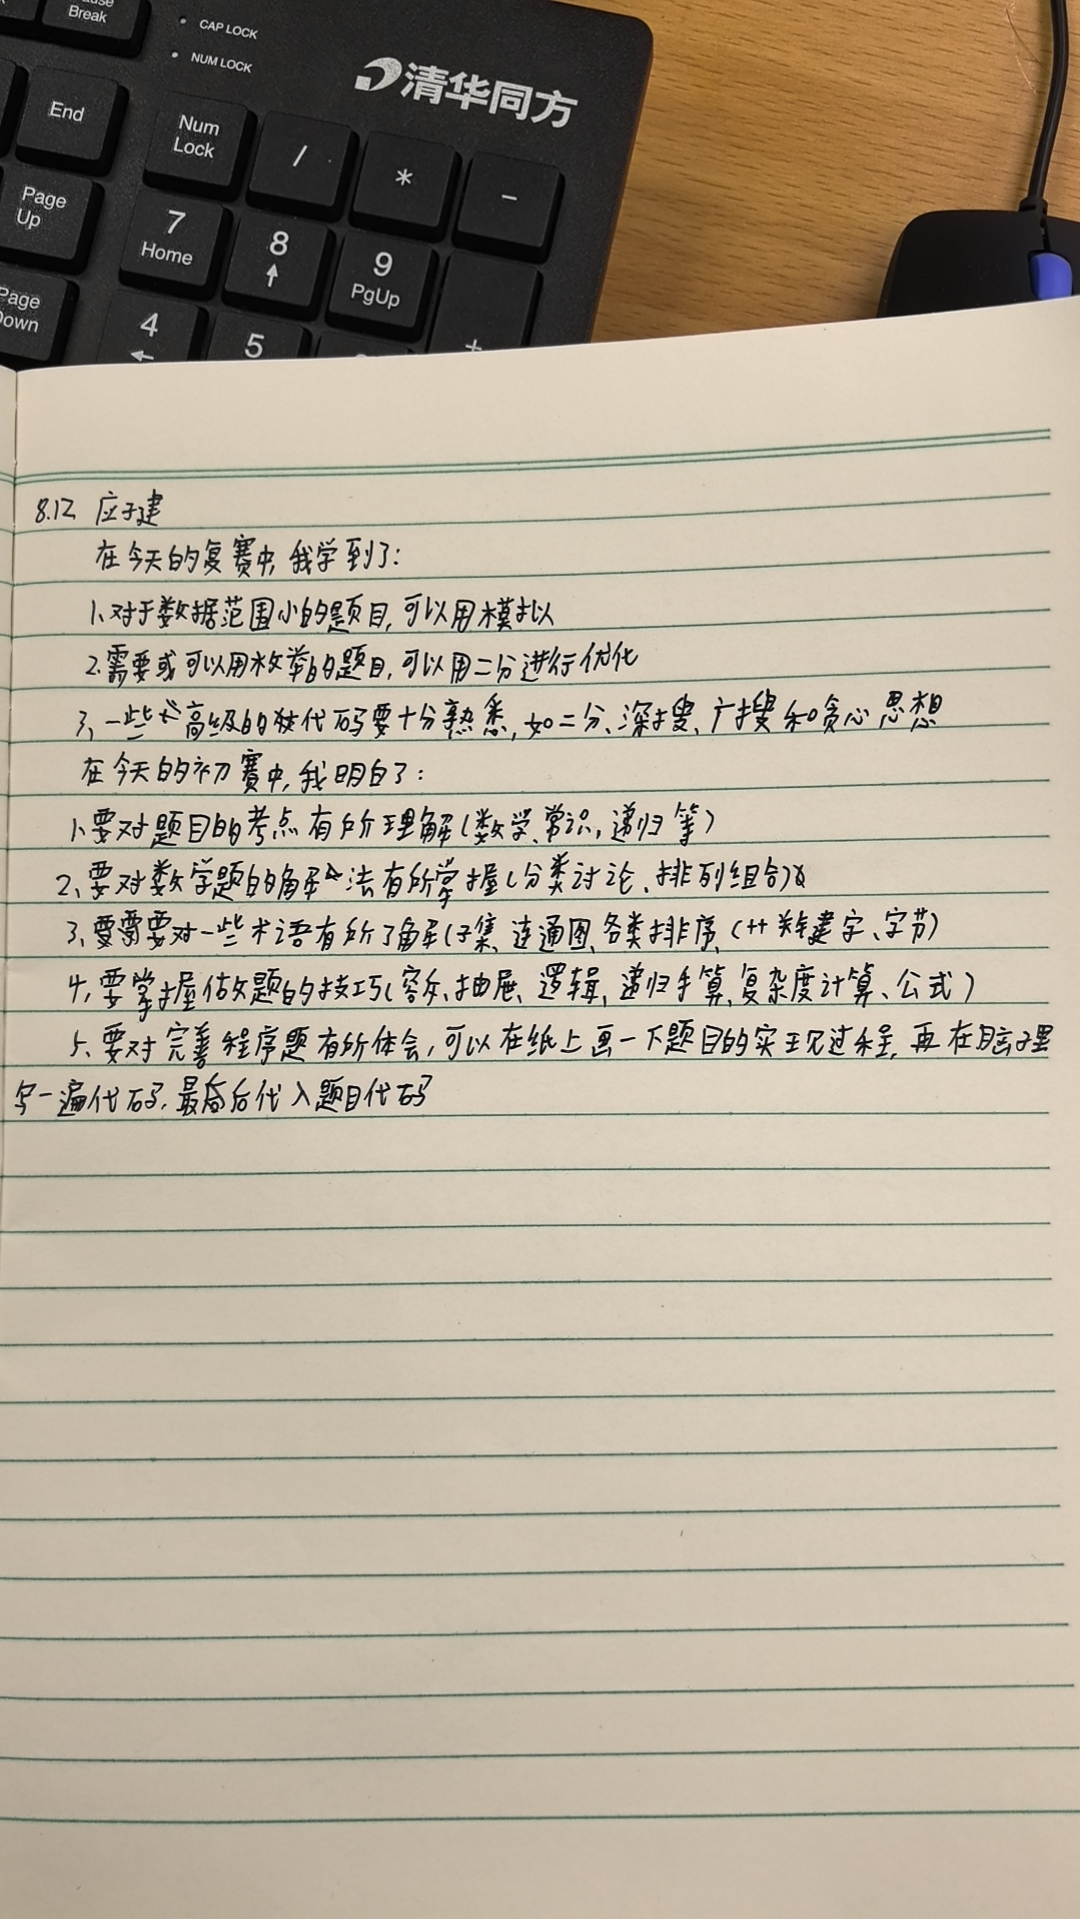 Break
CAP LOCK
NUM LOCK
清华同方
End
Num
Lock
/
*
-
Page
Up
7
Home
8
↑
9
PgUp
Page
Down
4
←
5
+
8.12 应于建
在今天的复赛中,我学到了:
1、对于数据范围小的题目,可以用模拟
2、需要或可以用枚举的题目,可以用二分进行优化
3、一些高级的代码要十分熟悉,如二分、深搜、广搜和贪心思想
在今天的初赛中,我明白了:
1、要对题目的考点有所理解(数学、常识,递归等)
2、要对数学题目的解法有所掌握(分类讨论、排列组合)
3、要需要对一些术语有所了解(子集、连通图、各类排序、C++关键字、字节)
4、要掌握做题的技巧(容斥、抽屉、逻辑、递归手算、复杂度计算、公式)
5、要对完善程序题有所体会,可以在纸上画一下题目的实现过程,再在脑子里
写一遍代码,最后代入题目代码